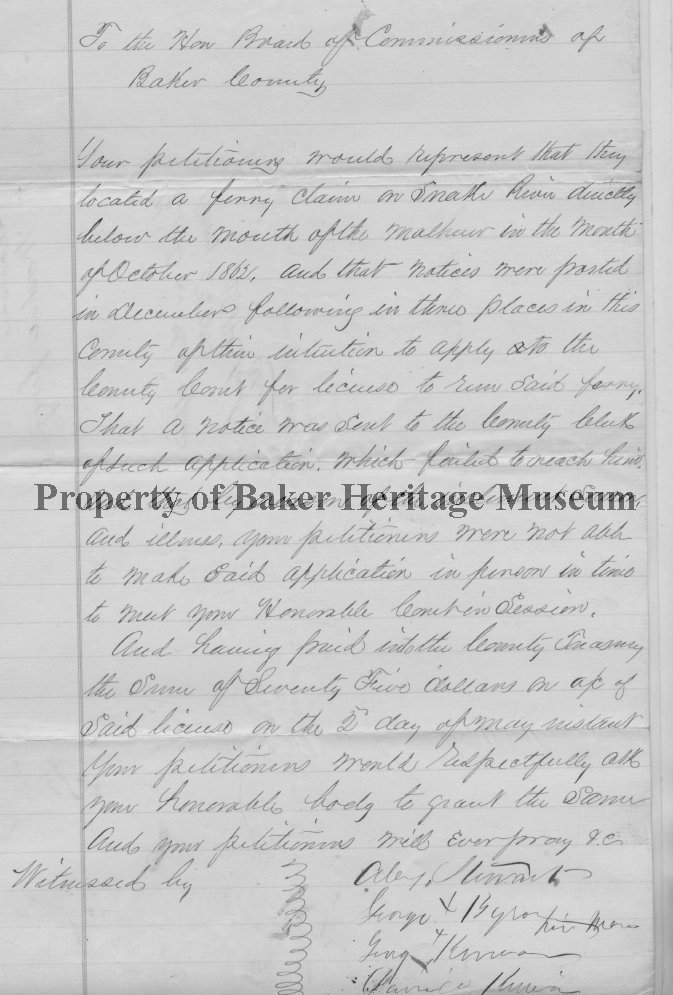 To the Hon Board of Commissioners of
Baker County
Your petitioners would represent that they
located a ferry claim on Snake River directly
below the mouth of the Malheur in the month
of October 1862. And that notices were posted
in December following in three places in this
County of their intention to apply to the
County Court for license to run said ferry.
That a notice was sent to the County Clerk
of such application, which failed to reach him.
Property of Baker Heritage Museum
And illness, your petitioners were not able
to make said application in person in time
to meet your Honorable Court in Session.
And having paid into the County Treasury
the Sum of Seventy Five dollars on a/c of
Said license on the 5 day of May instant
Your petitioners would respectfully ask
your honorable body to grant the Same
And your petitioners will ever pray &c
Witnessed by
Alex. Stewart
George X Byron his Mark